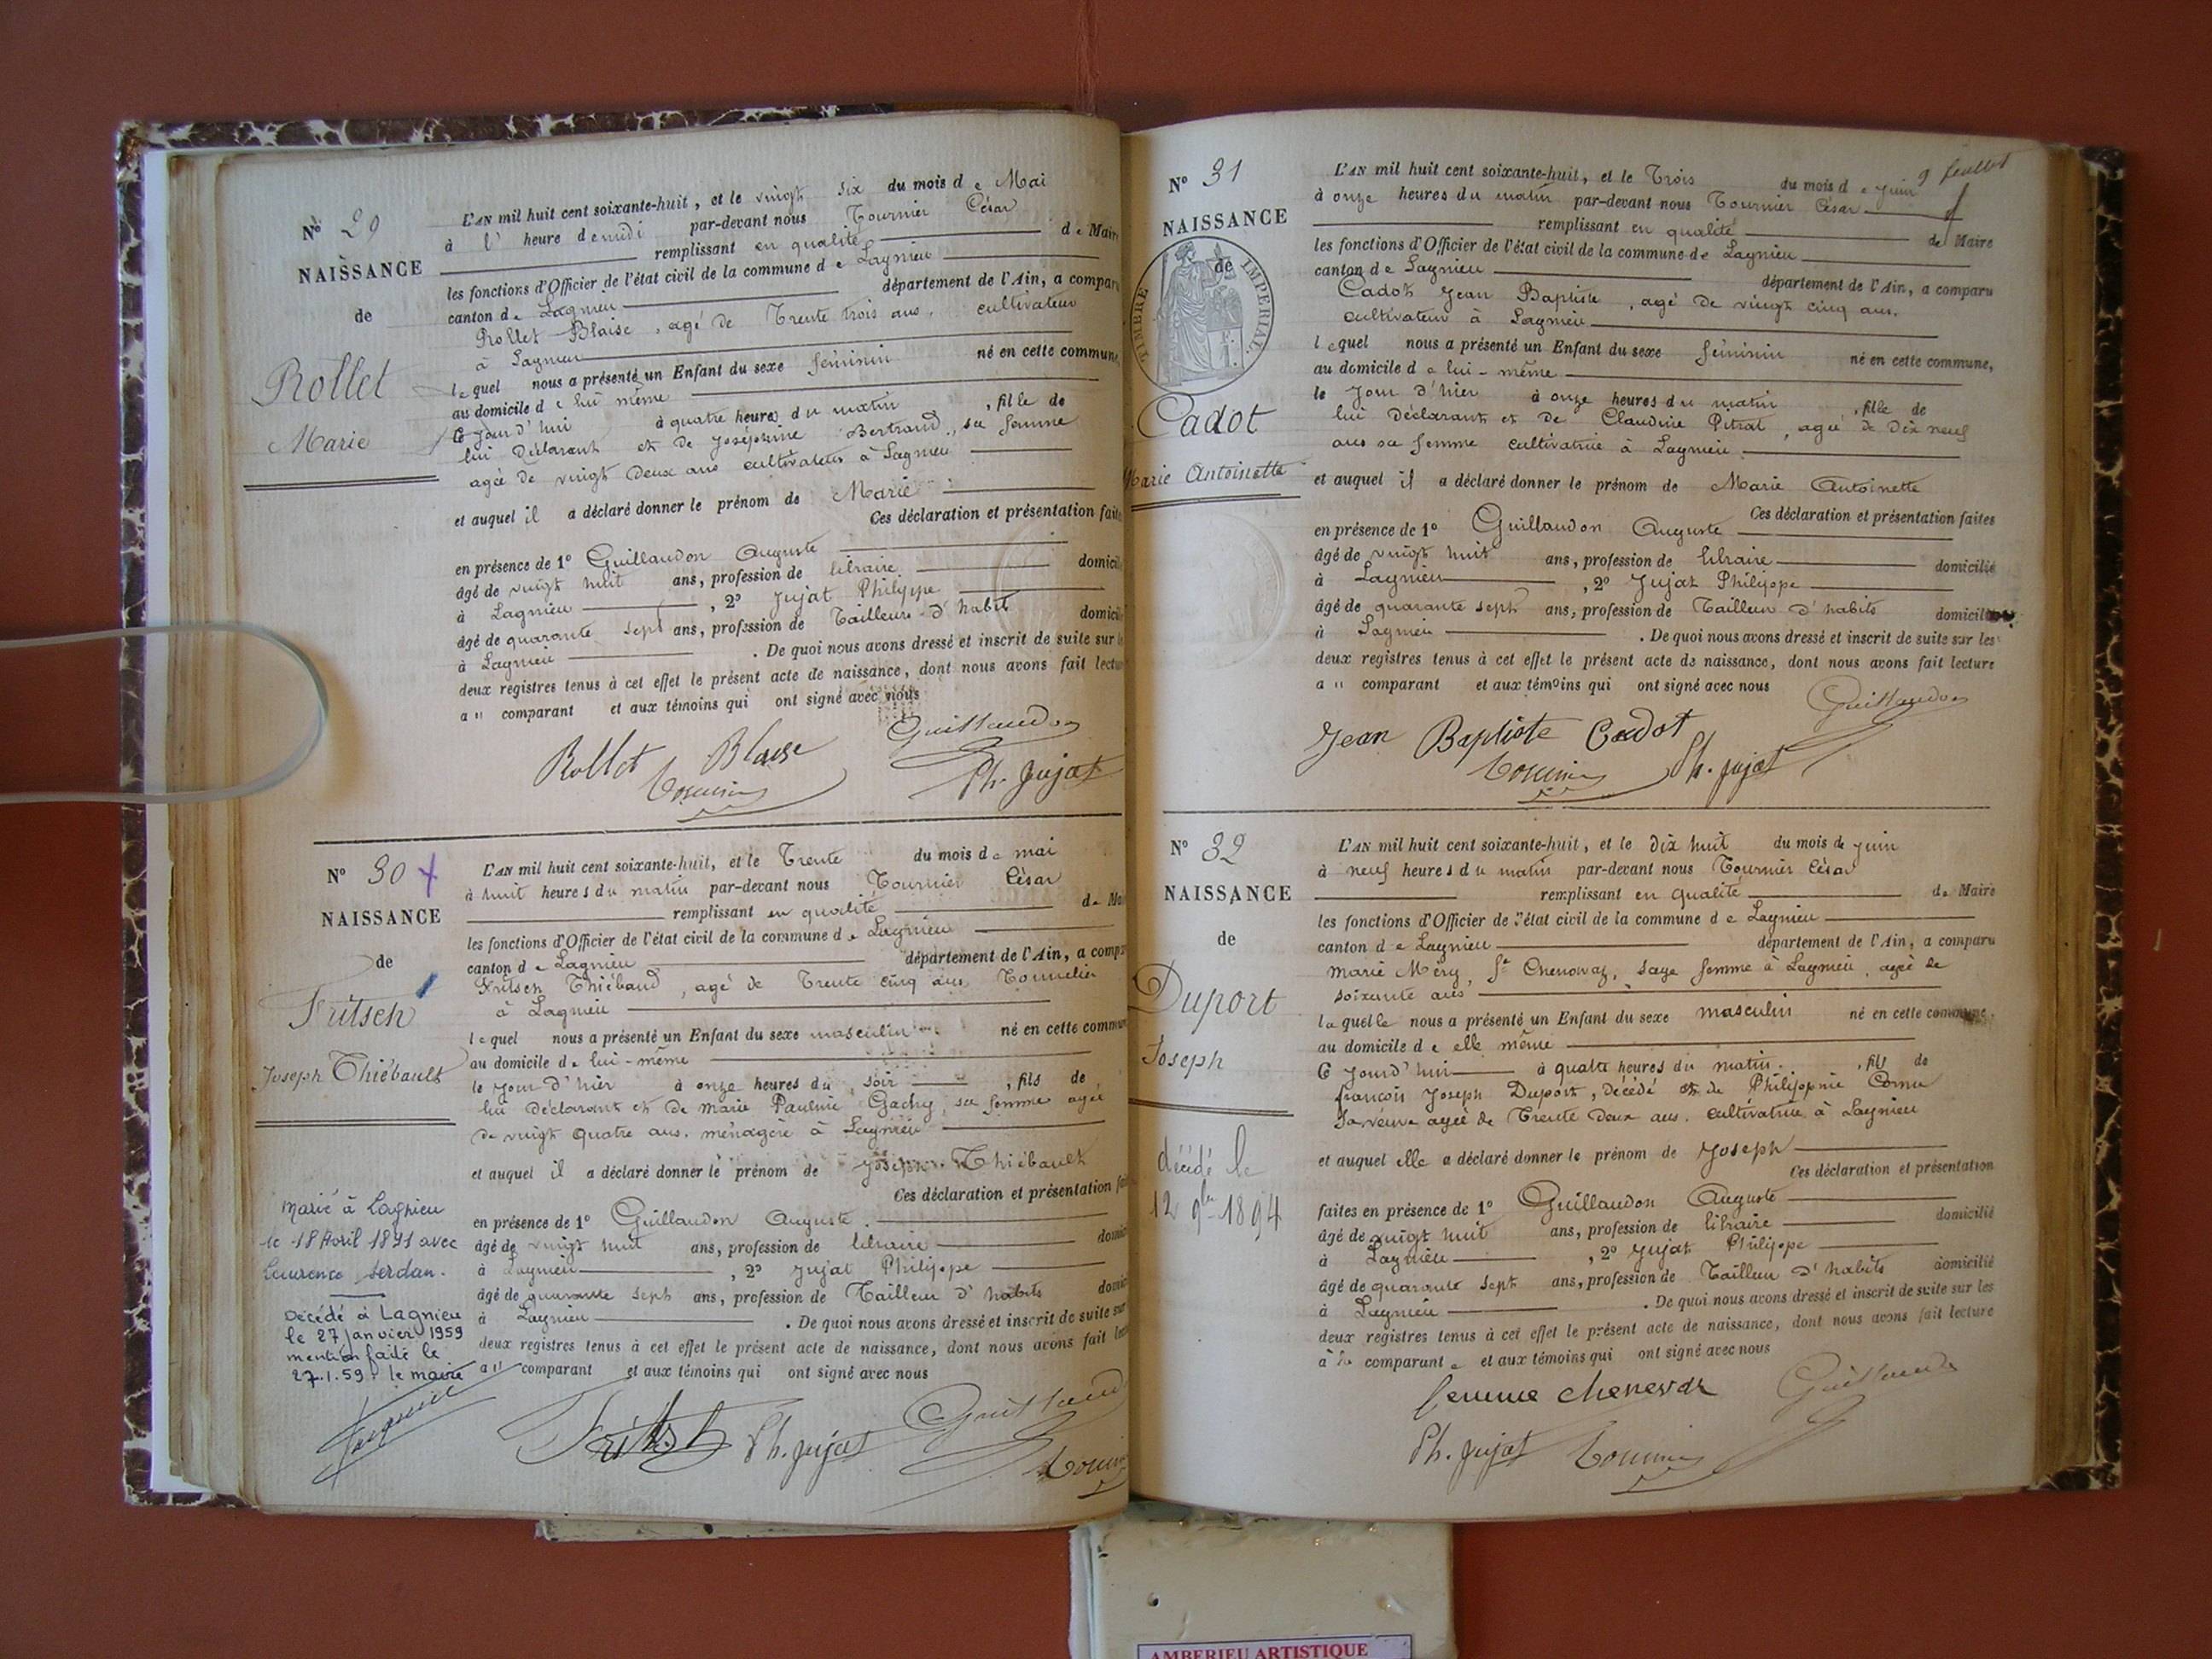 N° 29
NAISSANCE
de
Rollet
Marie
L'AN mil huit cent soixante-huit, et le vingt six du mois de Mai
à l' heure de midi par-devant nous Tournier César
remplissant en qualité de Maire
les fonctions d'Officier de l'état civil de la commune de Lagnieu
canton de Lagnieu département de l'Ain, a comparu
Rollet Blaise, agé de Trente trois ans, cultivateur
à Lagnieu
lequel nous a présenté un Enfant du sexe féminin né en cette commune,
au domicile de lui même
Ce jourd'hui à quatre heures du matin, fille de
lui Déclarant et de Joséphine Bertrand, sa femme
agée de vingt Deux ans cultivateurs à Lagnieu
et auquel il a déclaré donner le prénom de Marie
Ces déclaration et présentation faites
en présence de 1° Guillaudon Auguste
âgé de vingt huit ans, profession de libraire domicilié
à Lagnieu, 2° Jujat Philippe
âgé de quarante sept ans, profession de Tailleur d'habits domicilié
à Lagnieu. De quoi nous avons dressé et inscrit de suite sur les
deux registres tenus à cet effet le présent acte de naissance, dont nous avons fait lecture
au comparant et aux témoins qui ont signé avec nous
Guillaudon
Rollet Blaise
Tournier Ph. Jujat
N° 30
NAISSANCE
de
Fritsch
Joseph Thiébault
Marié à Lagnieu
le 18 Avril 1891 avec
Laurence Serdan.
Décédé à Lagnieu
le 27 janvier 1959
mention faite le
27.1.59. le maire
L'AN mil huit cent soixante-huit, et le Trente du mois de mai
à huit heures du matin par-devant nous Tournier César
remplissant en qualité de Maire
les fonctions d'Officier de l'état civil de la commune de Lagnieu
canton de Lagnieu département de l'Ain, a comparu
Fritsch Thiébaud, agé de Trente cinq ans, Tonnelier
à Lagnieu
lequel nous a présenté un Enfant du sexe masculin né en cette commune
au domicile de lui-même
le jour d'hier à onze heures du soir, fils de
lui Déclarant et de Marie Pauline Gachy, sa femme agée
de vingt quatre ans, ménagère à Lagnieu
et auquel il a déclaré donner le prénom de Joseph Thiébault
Ces déclaration et présentation faites
en présence de 1° Guillaudon Auguste
âgé de vingt huit ans, profession de libraire domicilié
à Lagnieu, 2° Jujat Philippe
âgé de quarante sept ans, profession de Tailleur d'habits domicilié
à Lagnieu. De quoi nous avons dressé et inscrit de suite sur
deux registres tenus à cet effet le présent acte de naissance, dont nous avons fait lecture
au comparant et aux témoins qui ont signé avec nous
Fritsch Ph. Jujat Guillaudon
Tournier
9 feuillet
N° 31
NAISSANCE
de
TIMBRE IMPERIAL
Cadot
Marie Antoinette
L'AN mil huit cent soixante-huit, et le Trois du mois de Juin
à onze heures du matin par-devant nous Tournier César
remplissant en qualité de Maire
les fonctions d'Officier de l'état civil de la commune de Lagnieu
canton de Lagnieu département de l'Ain, a comparu
Cadot Jean Baptiste, agé de vingt cinq ans,
cultivateur à Lagnieu
lequel nous a présenté un Enfant du sexe féminin né en cette commune,
au domicile de lui-même
le Jour d'hier à onze heures du matin, fille de
lui Déclarant et de Claudine Pitrat, agée de dix neuf
ans sa femme cultivatrice à Lagnieu
et auquel il a déclaré donner le prénom de Marie Antoinette
Ces déclaration et présentation faites
en présence de 1° Guillaudon Auguste
âgé de vingt huit ans, profession de libraire domicilié
à Lagnieu, 2° Jujat Philippe
âgé de quarante sept ans, profession de Tailleur d'habits domicilié
à Lagnieu. De quoi nous avons dressé et inscrit de suite sur les
deux registres tenus à cet effet le présent acte de naissance, dont nous avons fait lecture
au comparant et aux témoins qui ont signé avec nous
Guillaudon
Jean Baptiste Cadot
Tournier Ph. Jujat
N° 32
NAISSANCE
de
Duport
Joseph
décédé le
12 9bre 1894
L'AN mil huit cent soixante-huit, et le dix huit du mois de juin
à neuf heures du matin par-devant nous Tournier César
remplissant en qualité de Maire
les fonctions d'Officier de l'état civil de la commune de Lagnieu
canton de Lagnieu département de l'Ain, a comparu
Marie Méry, fe Chenovaz, sage femme à Lagnieu, agée de
soixante ans
laquelle nous a présenté un Enfant du sexe masculin né en cette commune.
au domicile de elle même
Ce jourd'hui à quatre heures du matin, fils de
françois Joseph Duport, décédé et de Philippine Cornu
Sa veuve agée de Trente Deux ans, cultivatrice à Lagnieu
et auquel elle a déclaré donner le prénom de Joseph
Ces déclaration et présentation
faites en présence de 1° Guillaudon Auguste
âgé de vingt huit ans, profession de libraire domicilié
à Lagnieu, 2° Jujat Philippe
âgé de quarante sept ans, profession de Tailleur d'habits domicilié
à Lagnieu. De quoi nous avons dressé et inscrit de suite sur les
deux registres tenus à cet effet le présent acte de naissance, dont nous avons fait lecture
à la comparante et aux témoins qui ont signé avec nous
femme chenevaz Guillaudon
Ph. Jujat Tournier
AMBERIEU ARTISTIQUE